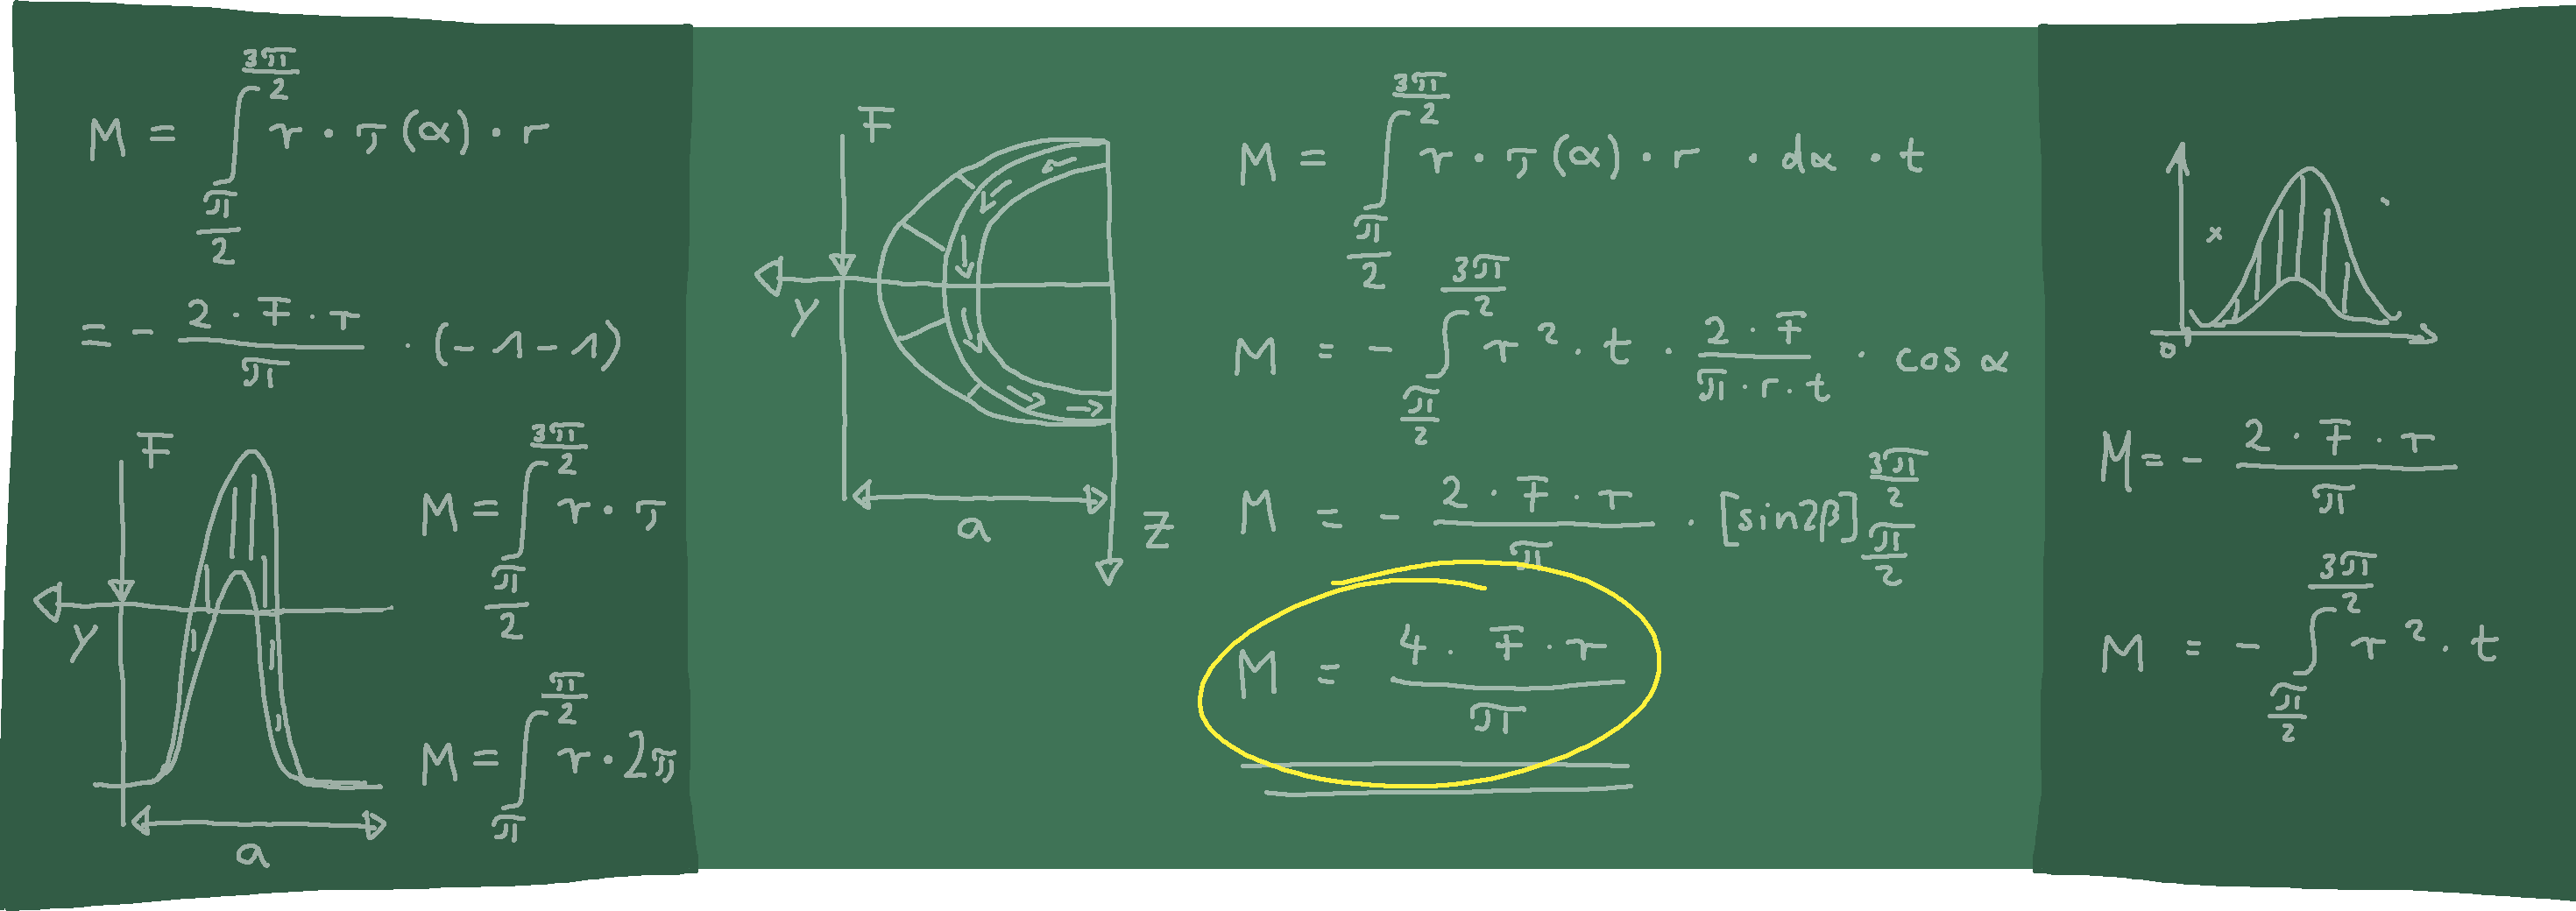 M = ∫_{π/2}^{3π/2} r · τ(α) · r
= - (2 · F · r)/π · (-1-1)
F
y
a
M = ∫_{π/2}^{3π/2} r · τ
M = ∫_{π}^{π/2} r · 2π
F
y
a
z
M = ∫_{π/2}^{3π/2} r · τ(α) · r · dα · t
M = - ∫_{π/2}^{3π/2} r² · t · (2 · F)/(π · r · t) · cos α
M = - (2 · F · r)/π · [sin2β]_{π/2}^{3π/2}
M = (4 · F · r)/π
x
0
M = - (2 · F · r)/π
M = - ∫_{π/2}^{3π/2} r² · t